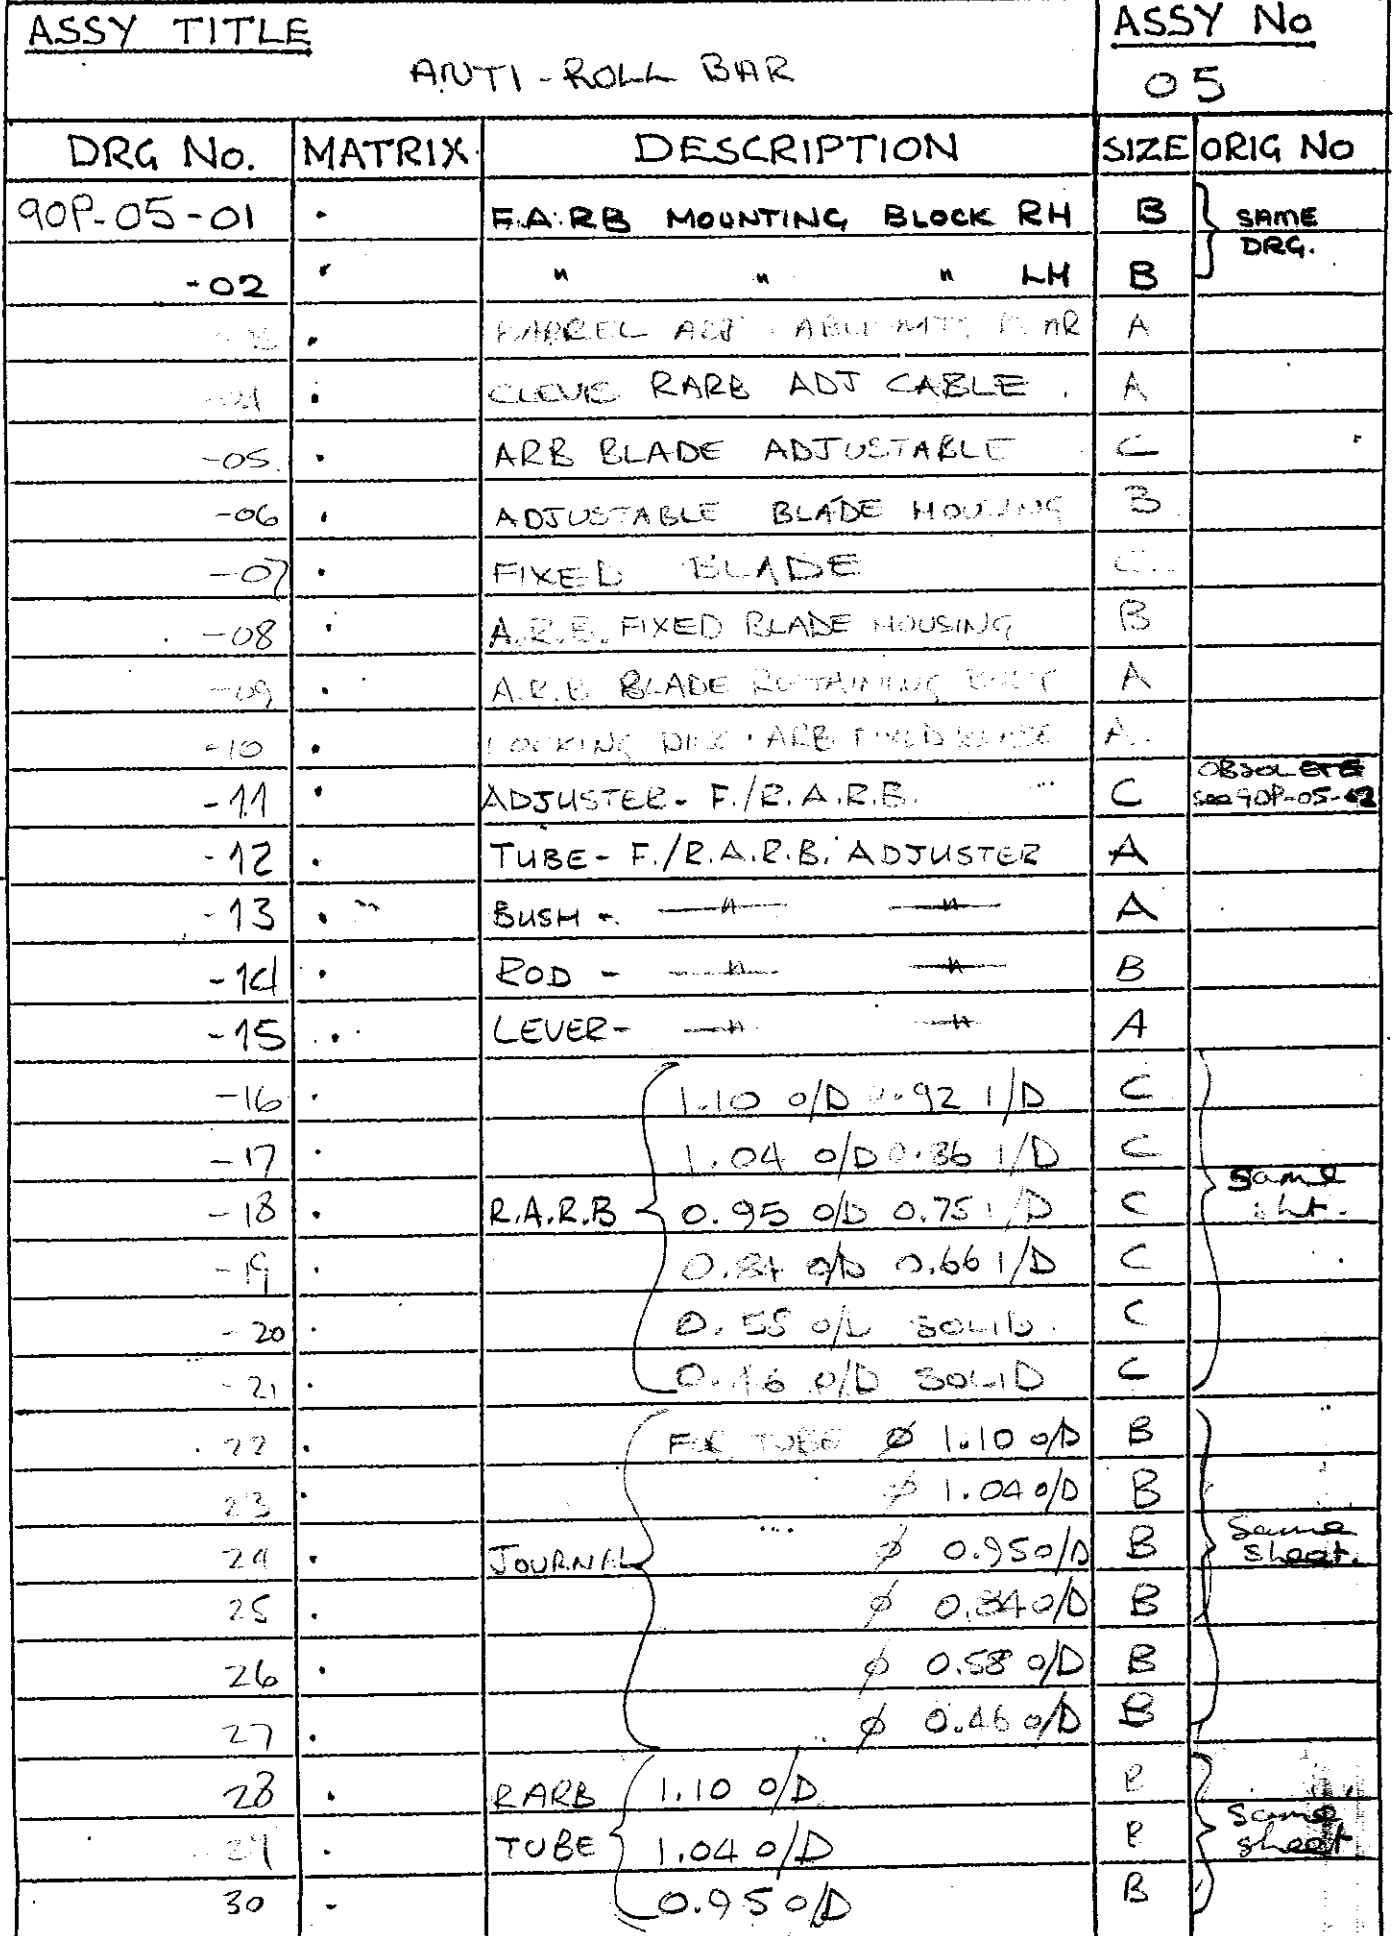 ASSY TITLE
ASSY No
ANTI-ROLL BAR
05
DRG No. MATRIX DESCRIPTION SIZE ORIG No
90P-05-01 . F.A.R.B MOUNTING BLOCK RH B SAME DRG.
-02 " " " LH B
BARREL A
CLEVIS RARB ADJ CABLE. A
-05 . ARB BLADE ADJUSTABLE C
-06 . ADJUSTABLE BLADE HOUSING B
-07 . FIXED BLADE C
-08 . A.R.B. FIXED BLADE HOUSING B
-09 . A.R.B BLADE RETAINING A
-10 . LOCKING ARB FIXED BLADE A.
-11 . ADJUSTER - F./R.A.R.B. C OBSOLETE see 90P-05-62
-12 . TUBE - F./R.A.R.B. ADJUSTER A
-13 . BUSH - —"— —"— A
-14 . ROD - —"— —"— B
-15 . LEVER - —"— —"— A
-16 . 1.10 O/D 0.92 I/D C
-17 . 1.04 O/D 0.86 I/D C
-18 . R.A.R.B 0.95 O/D 0.75 I/D C same sht.
-19 . 0.84 O/D 0.66 I/D C
-20 . 0.58 O/D SOLID. C
-21 . 0.46 O/D SOLID C
22 . FOR TUBE Ø 1.10 O/D B
23 . Ø 1.04 O/D B
24 . JOURNAL Ø 0.95 O/D B Same sheet.
25 . Ø 0.84 O/D B
26 . Ø 0.58 O/D B
27 . Ø 0.46 O/D B
28 . RARB 1.10 O/D B
29 . TUBE 1.04 O/D B Same sheet
30 - 0.95 O/D B